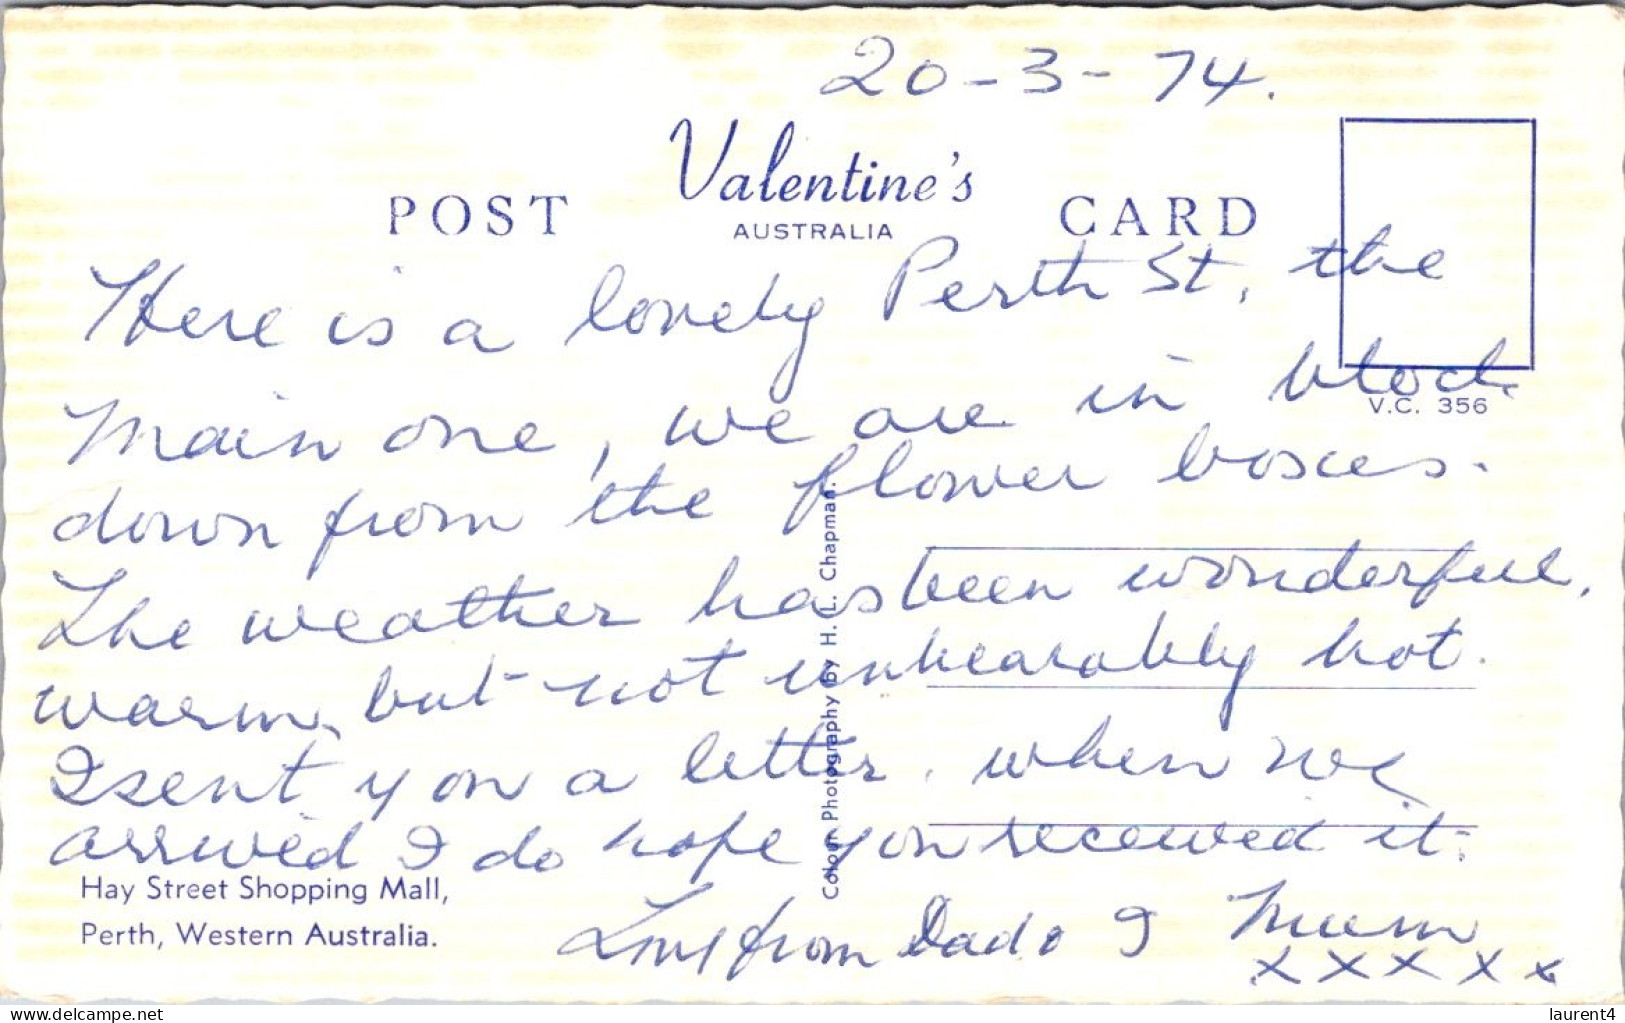 20-3-74.
Valentine's
POST AUSTRALIA CARD
Here is a lovely Perth St, the
V.C. 356
Main one, we are in block
down from the flower boxes.
The weather has been wonderful,
warm, but not unbearably hot.
I sent you a letter, when we
arrived I do hope you received it.
Hay Street Shopping Mall,
Perth, Western Australia.
Love from Dad & Mum
x x x x x
Colour Photography by H. L. Chapman.
delcampe.net
laurent4